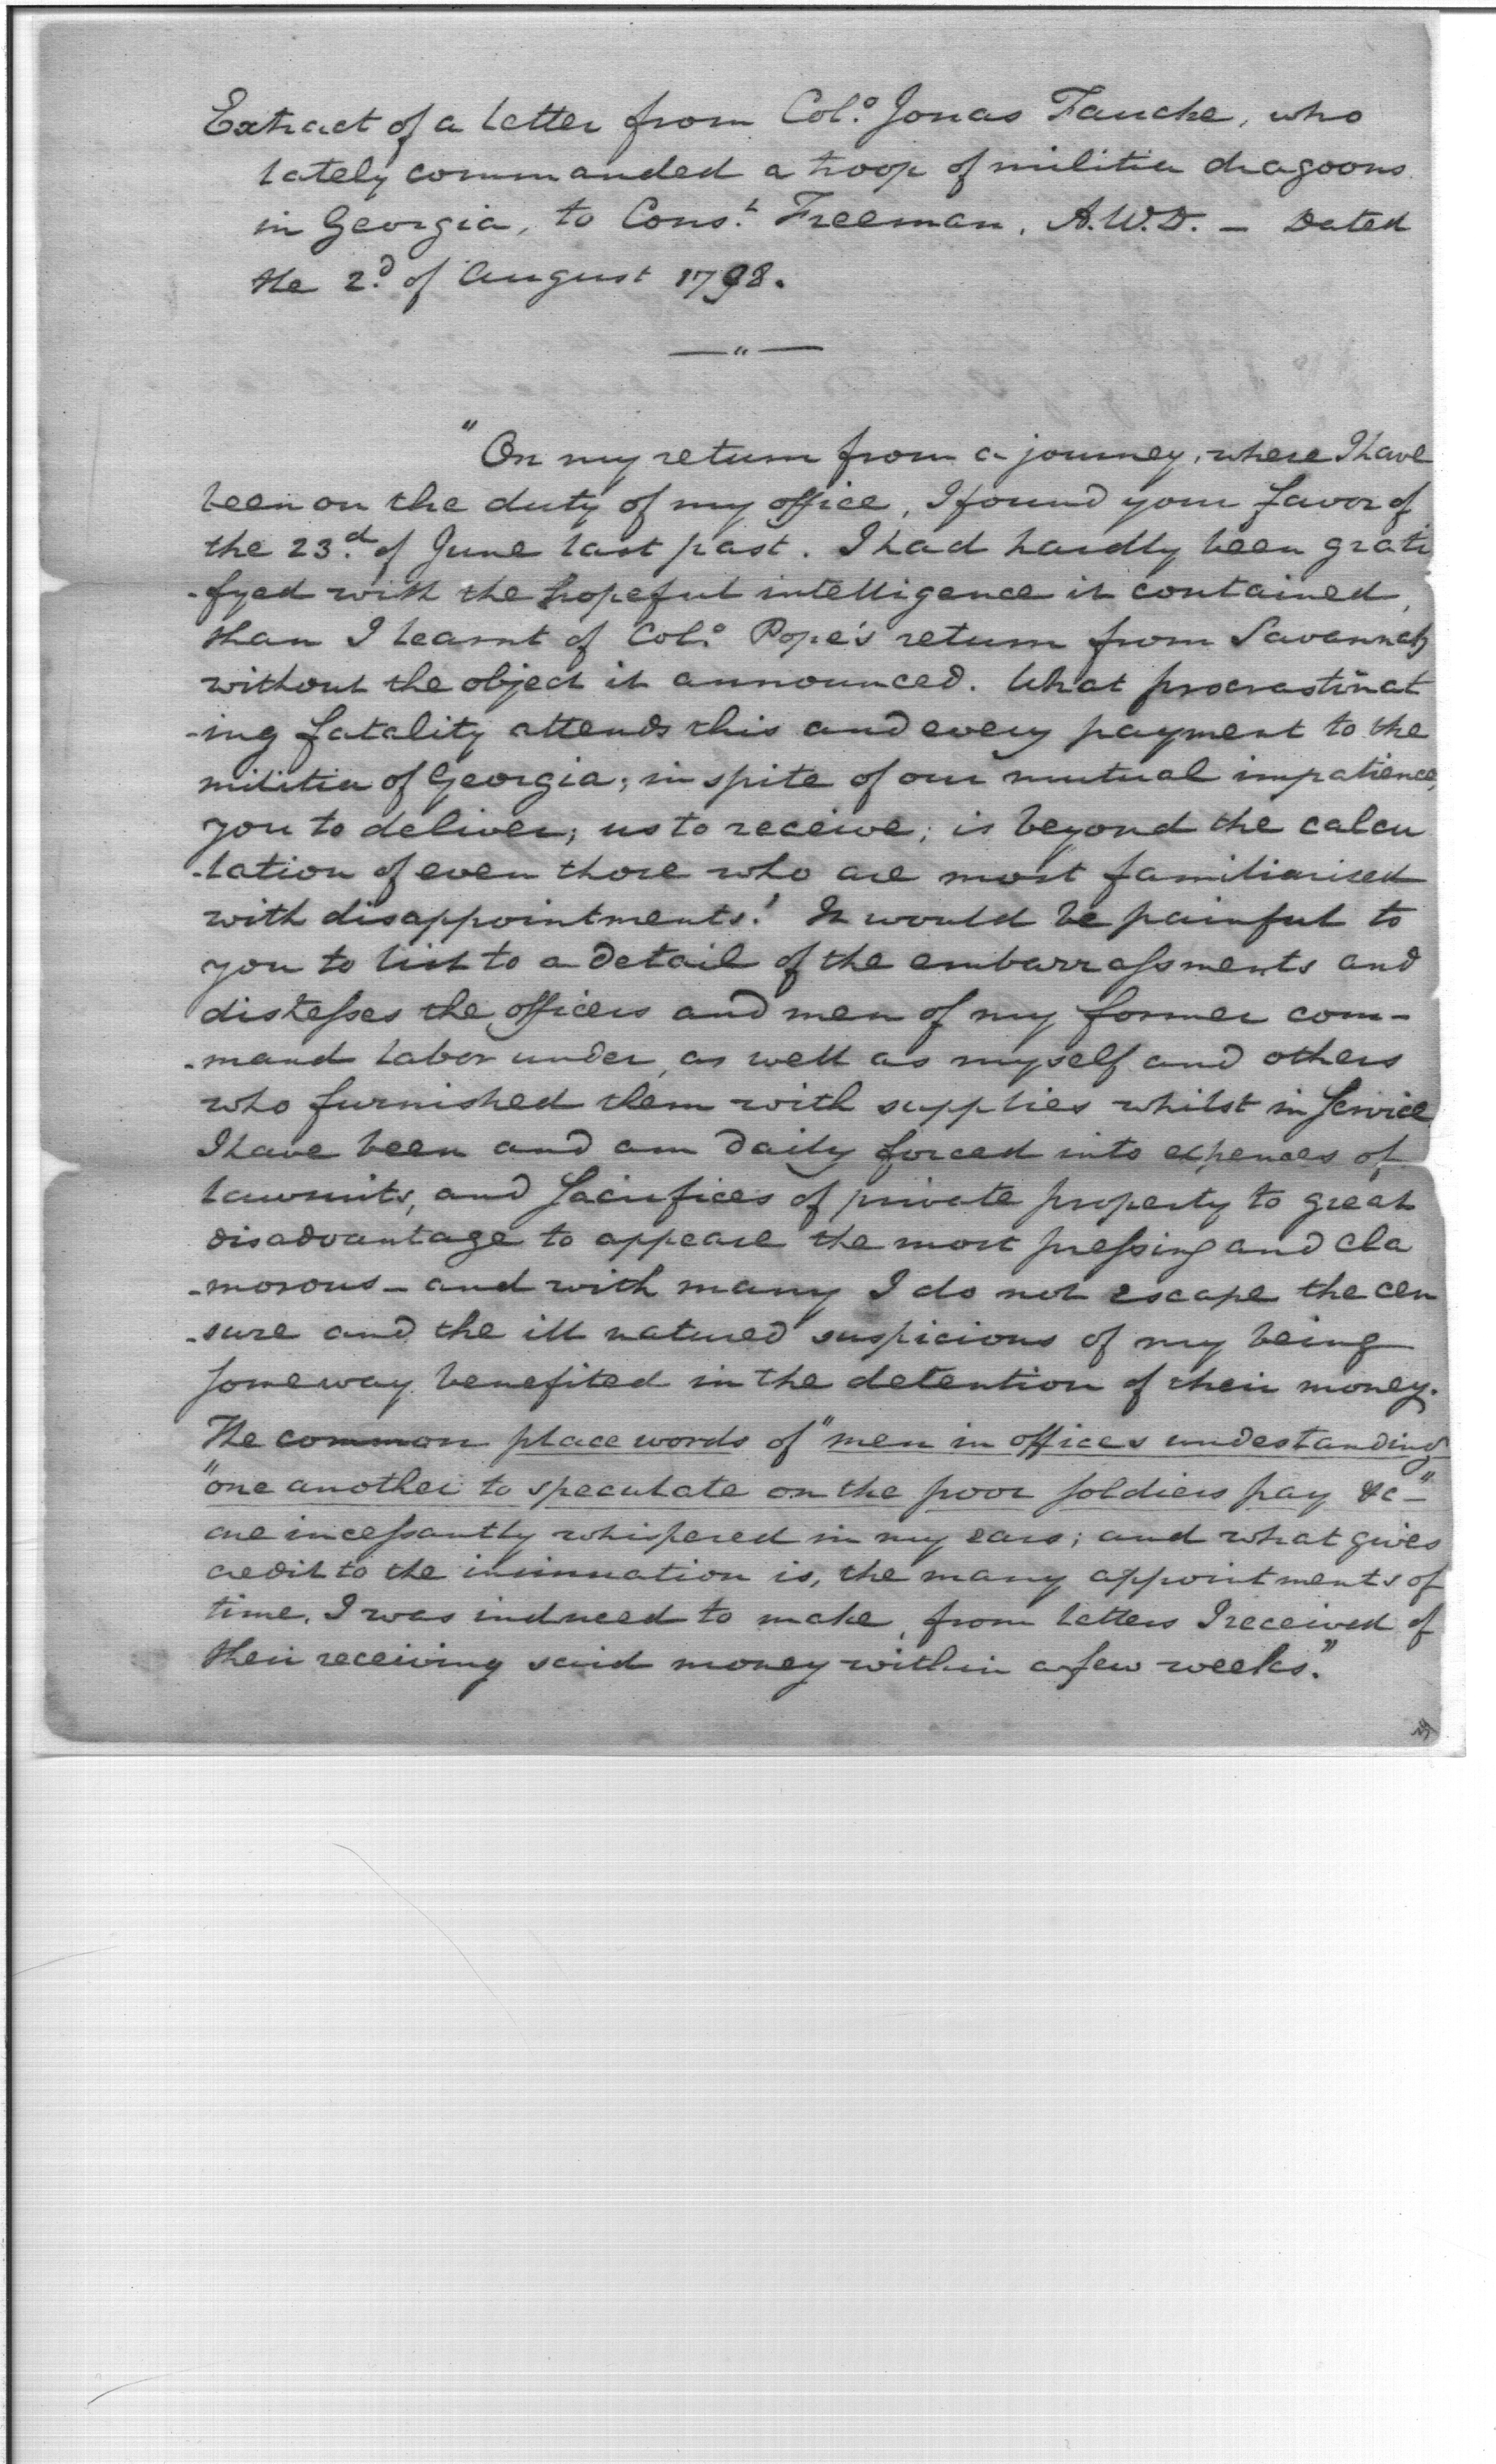 Extract of a letter from Col.º Jonas Fauche, who
lately commanded a troop of militia dragoons
in Georgia, to Cons.t Freeman, A.W.D. – Dated
the 2.d of August 1798.
—"—
"On my return from a journey, where I have
been on the duty of my office, I found your favor of
the 23.d of June last past. I had hardly been grati
-fyed with the hopeful intelligence it contained,
than I learnt of Col.º Pope's return from Savannah
without the object it announced. What procrastinat
-ing fatality attends this and every payment to the
militia of Georgia; in spite of our mutual impatience,
you to deliver; us to receive; is beyond the calcu
-lation of even those who are most familiarised
with disappointments! It would be painful to
you to list to a detail of the embarrassments and
distesses the officers and men of my former com-
-mand labor under, as well as myself and others
who furnished them with supplies whilst in Service
I have been and am daily forced into expences of
lawsuits, and Sacrifices of private property to great
disadvantage to appease the most pressing and cla
-morous – and with many I do not escape the cen
-sure and the ill natured suspicions of my being
some way benefited in the detention of their money.
The common place words of "men in offices undestanding
"one another to speculate on the poor soldiers pay &c–"
are incessantly whispered in my ears; and what gives
credit to the insinuation is, the many appointments of
time, I was induced to make, from letters I received of
their receiving said money within a few weeks."